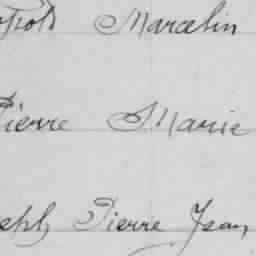 Marcelin
Pierre Marie
Pierre Jean